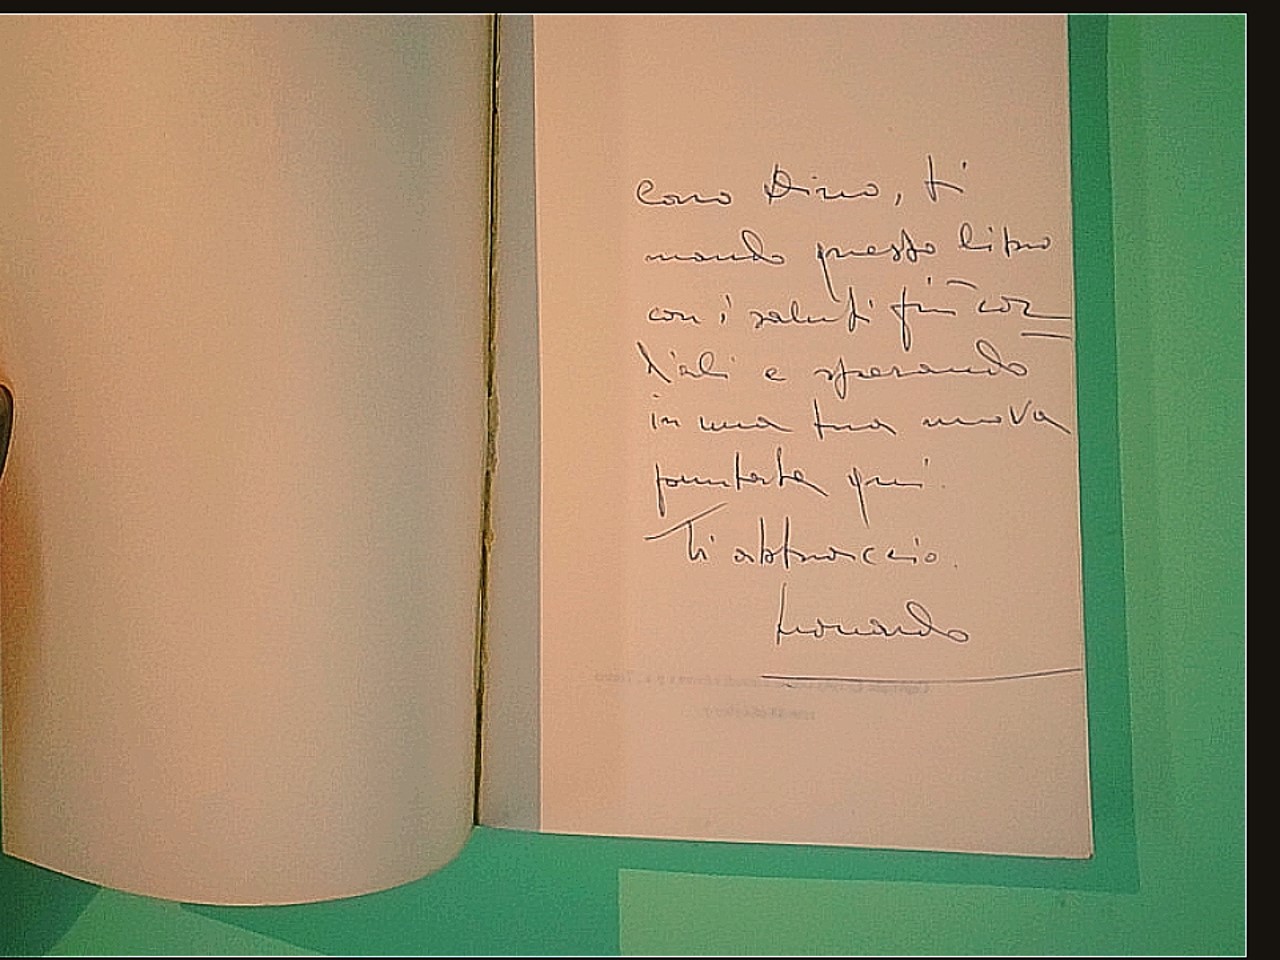 Caro Dino, ti
mando questo libro
con i saluti più cor=
diali e sperando
in una tua nuova
puntata qui.
Ti abbraccio.
Leonardo